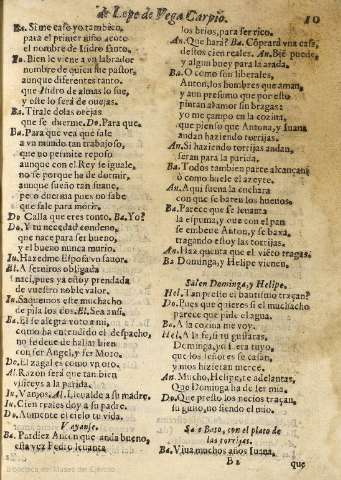 de Lope de Vega Carpio. 10
Ba. Si me caso yo tambien,
para el primer niño aceto
el nombre de Isidro santo.
Do. Bien le viene a vn labrador
nombre de quien fue pastor,
aunque diferentes tanto.
que Isidro de almas lo fue,
y este lo será de ouejas.
Ba. Tirale dolas orejas
que se duerme. Do. Para que.
Ba. Para que vea que sale
a vn mundo tan trabajoso,
que no permite reposo
aunque con el Rey se iguale,
no se porque ha de dormir,
aunque sueño tan suaue,
pero duerma pues no sabe
que sale para morir.
Do Calla que eres tonto. Ba. Yo?
Do. Y tu necedad condeno,
que nace para ser bueno,
y el bueno nunca murio.
In. Hazedme Esposa vn fauor.
El. A seruiros obligada
naci, pues ya estoy prendada
de vuestro noble valor.
In. Saquemos este muchacho
de pila los dos. El. Sea ansi.
Ba. El se alegra voto a mi,
como ha entendido el despacho,
no se deue de hallar bien
con ser Angel, y ser Moro.
Do El zagal es como vn oro.
Al. Razon será que tan bien
visiteys a la parida.
In. Vamos. Al. Lleualde a su madre.
In. Cien reales doy a su padre.
Do. Aumente el cielo tu vida.
Vayanse.
Ba. Pardiez Anton que anda bueno,
esta vez Pedro
los brios, para ser rico.
An. Que hará? Ba. Cóprará vna casa,
de los cien reales. An. Bié puede,
y algun buey para la arada.
Ba. O como son liberales,
Anton, los hombres que aman,
y aun presumo que por esto
pintan al amor sin bragas
yo me campo en la cozina,
que pienso que Antona, y Iuana
andan haziendo torrijas.
An. Si haziendo torrijas andan,
seran para la parida.
Ba. Todos tambien parte alcançan
ó como huele el azeyte.
An. Aqui suena la cuchara
con que se baten los hueuos.
Ba. Parece que se leuanta
la espuma, y que con el pan
se embeue Anton, y se baxa,
tragando estoy las torrijas.
An. Haz quenta que el viéto tragas.
Ba Dominga, y Helipe vienen.
Salen Dominga, y Helipe.
Hel. Tan presto el bautismo traçan?
Do. Pues que quieres si el muchacho
parece que pide el agua.
Ba. A la cozina me voy.
Hel. A la fe, si tu gustaras,
Dominga, yo fuera tuyo,
que los señores se casan,
y nos hizieran merced.
An. Mucho, Helipe, te adelantas,
Que Dominga ha de ser mia.
Do. Que presto los necios traçan,
su gusto, no siendo el mio.
Sale Bato, con el plato de
las torrijas.
Ba. Viua muchos años Iuana,
B 2 que
Biblioteca del Museo del Ejército